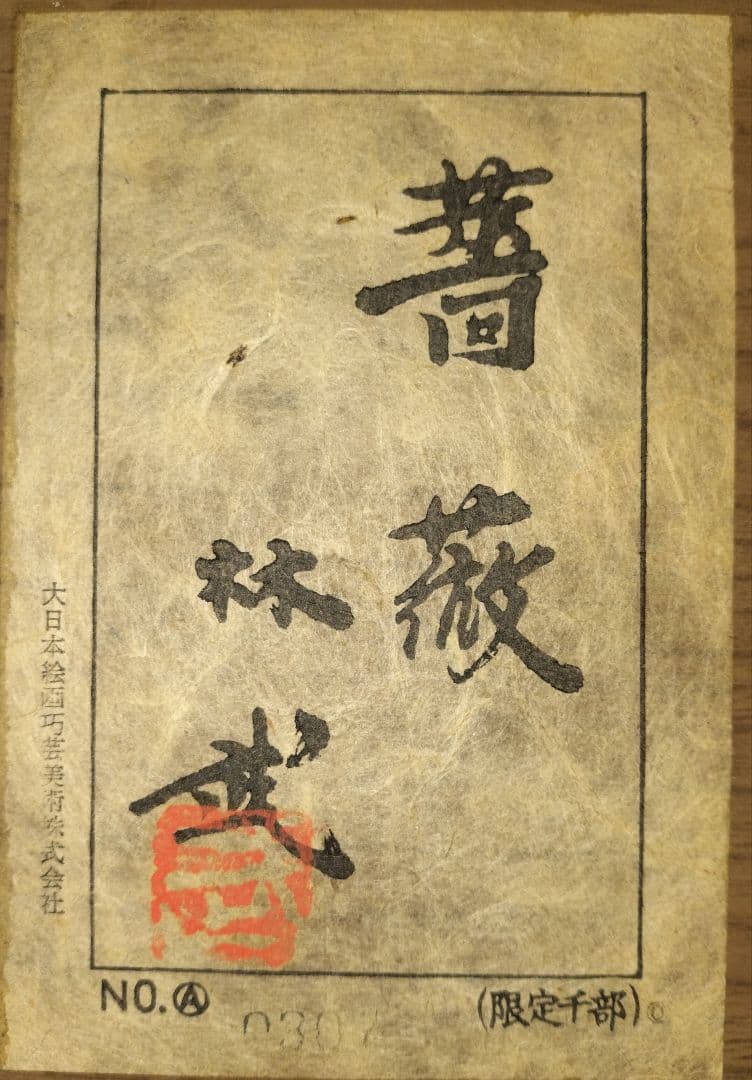 薔薇
林武
大日本絵画巧芸美術株式会社
NO.Ⓐ
(限定千部)©